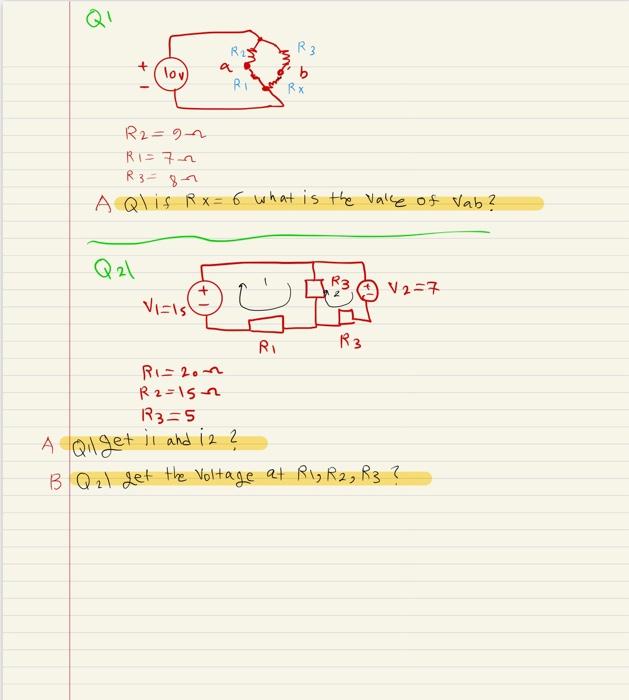 Q1
+
-
10v
R2
R3
a
b
R1
Rx
R2 = 9Ω
R1 = 7Ω
R3 = 8Ω
A Q\ if Rx = 6 what is the value of Vab?
Q2\
V1=15
+
-
1
R3
2
+
-
V2=7
R1
R3
R1 = 20Ω
R2 = 15Ω
R3 = 5
A Q1\ get i1 and i2 ?
B Q2\ get the voltage at R1, R2, R3 ?